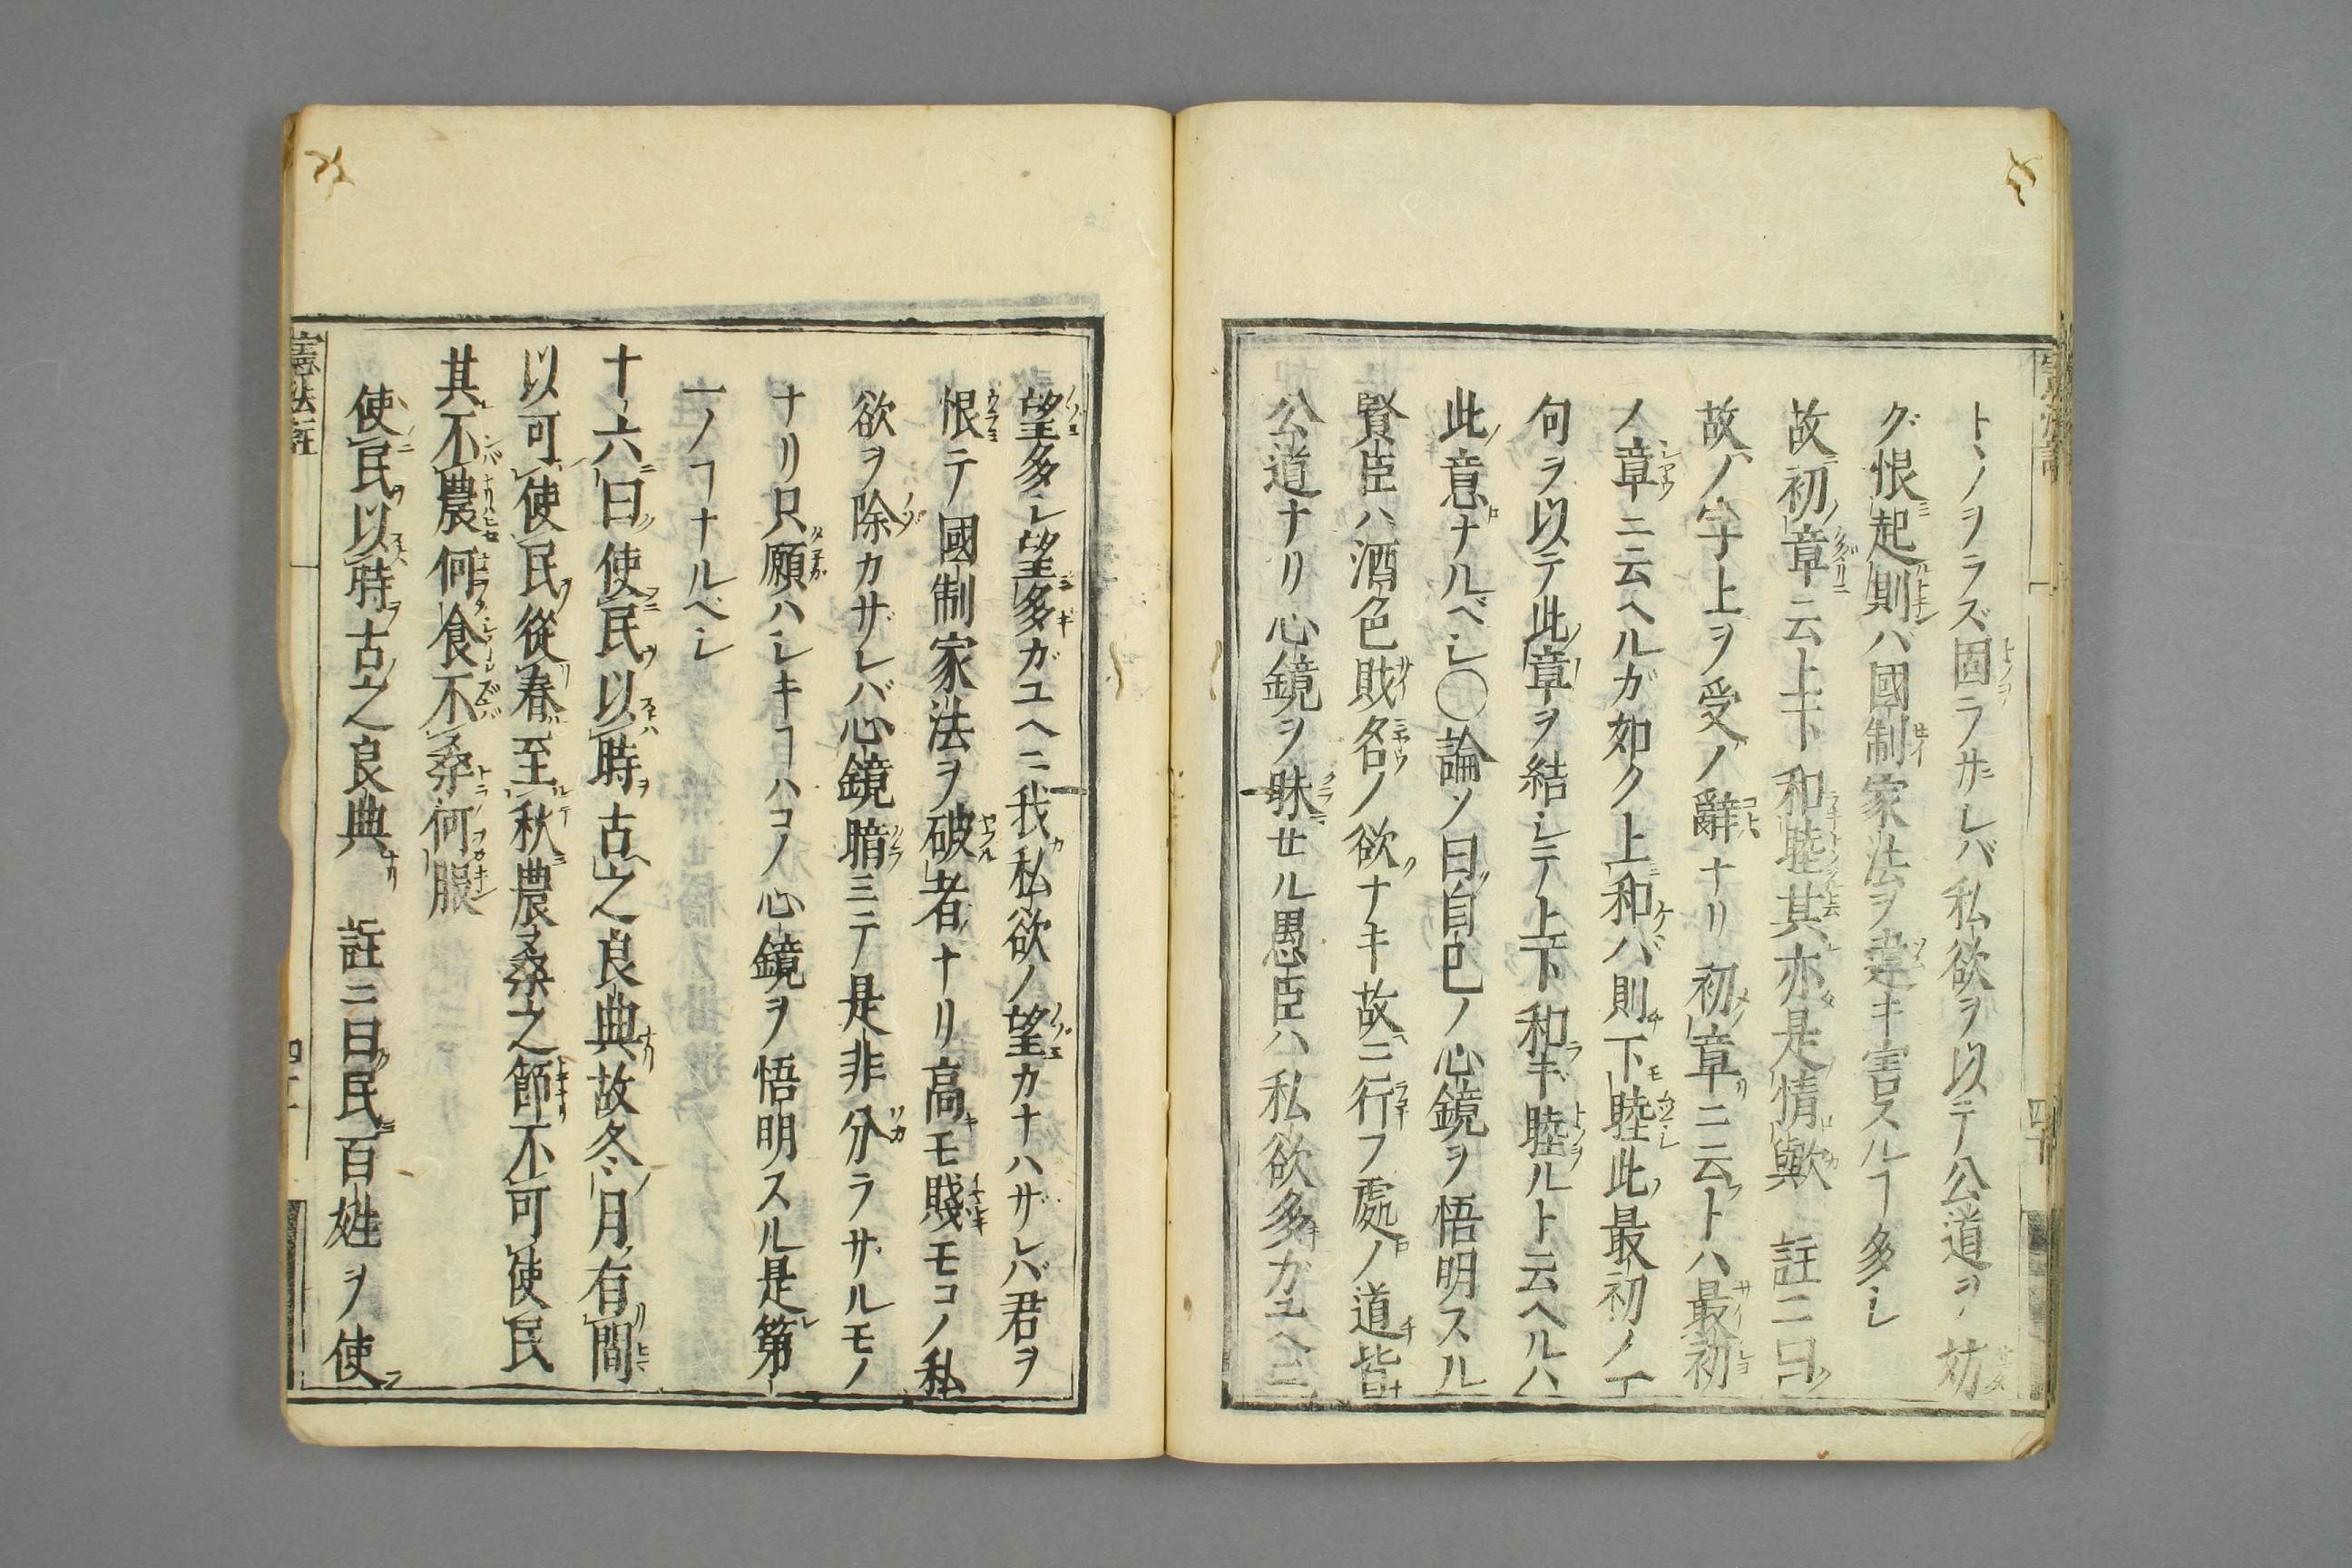 トヽノヲラズ固ラサレバ私欲ヲ以テ公道ヲ妨
グ恨起則バ國制家法ヲ違キ害スルヿ多シ
故初章云上下和睦其亦是情歟 註ニ曰
故ノ字上ヲ受ノ辭ナリ初章ニ云トハ最初
ノ章ニ云ヘルガ如ク上和バ則下睦此最初ノ
句ヲ以テ此章ヲ結シテ上下和キ睦ルト云ヘルハ
此意ナルベシ〇論ソ曰自己ノ心鏡ヲ悟明スル
賢臣ハ酒色財名ノ欲ナキ故ニ行フ處ノ道皆
公道ナリ心鏡ヲ昧セル愚臣ハ私欲多ガユヘニ
望多シ望多ガユヘニ我私欲ノ望カナハザレバ君ヲ
恨テ國制家法ヲ破者ナリ高モ賤モコノ私
欲ヲ除カザレバ心鏡暗ニテ是非分ラサルモノ
ナリ只願ハシキヿハコノ心鏡ヲ悟明スル是第
一ノヿナルベシ
十六曰使民以時古之良典故冬月有間
以可使民從春至秋農桑之節不可使民
其不農何食不桑何服
使民以時古之良典 註ニ曰民百姓ヲ使
憲法註